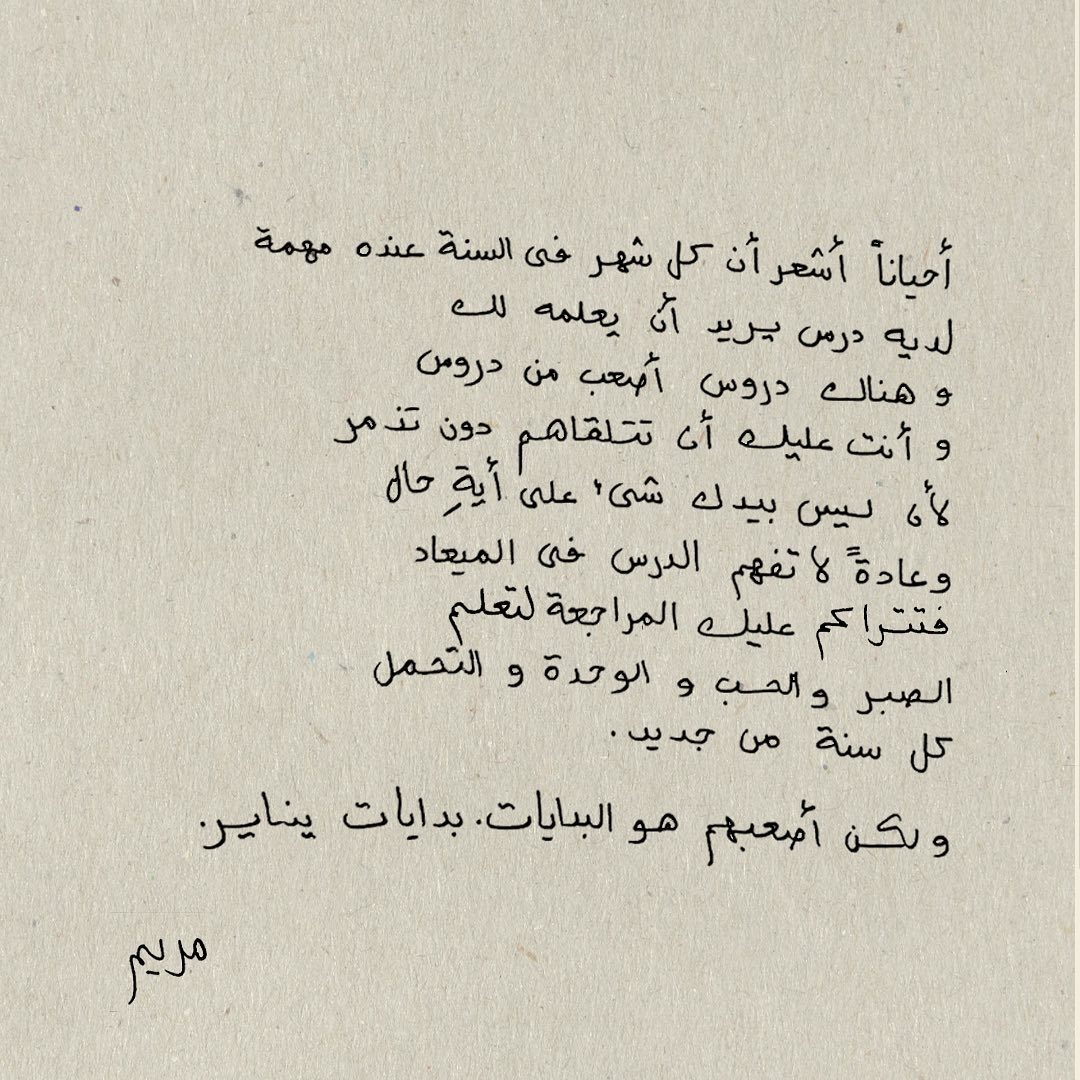 أحياناً أشعر أن كل شهر فى السنة عنده مهمة
لديه درس يريد أن يعلمه لك
و هناك دروس أصعب من دروس
و أنت عليك أن تتلقاهم دون تذمر
لأن ليس بيدك شىء على أيةِ حال
وعادةً لا تفهم الدرس فى الميعاد
فتتراكم عليك المراجعة لتعلم
الصبر والحب و الوحدة و التحمل
كل سنة من جديد.
و لكن أصعبهم هو البدايات. بدايات يناير.
مريم